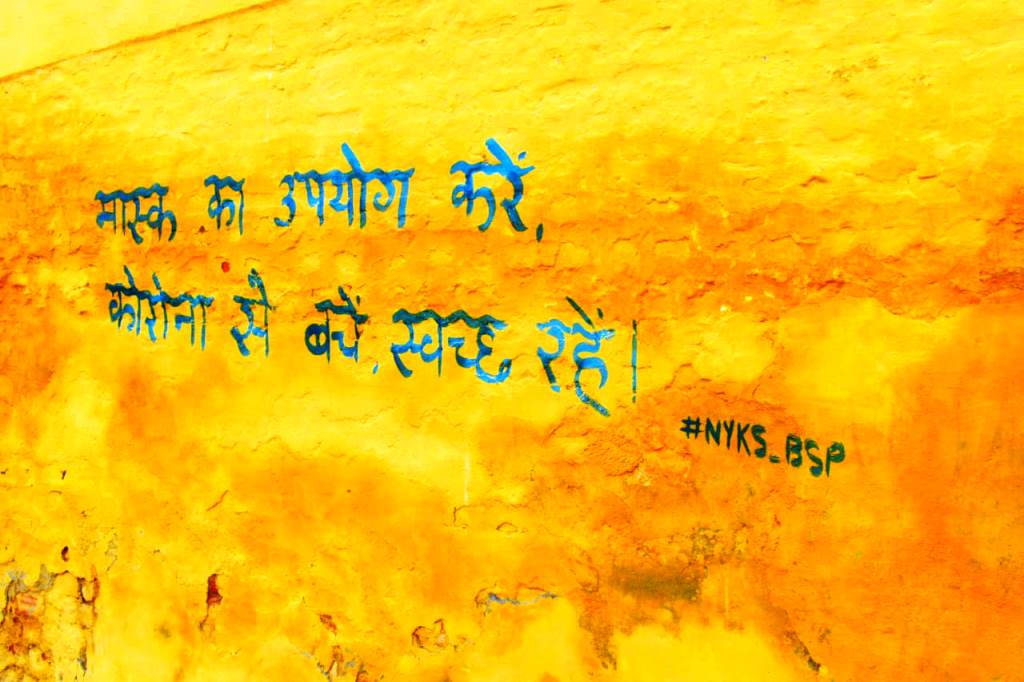 मास्क का उपयोग करें,
कोरोना से बचें, स्वच्छ रहें।
#NYKS_BSP